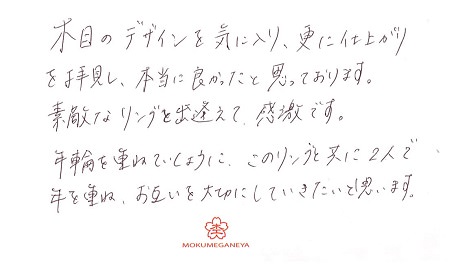 木目のデザインを気に入り、更に仕上がり
を拝見し、本当に良かったと思っております。
素敵なリングと出逢えて、感激です。
年輪を重ねていくように、このリングと共に2人で
年を重ね、お互いを大切にしていきたいと思います。
MOKUMEGANEYA